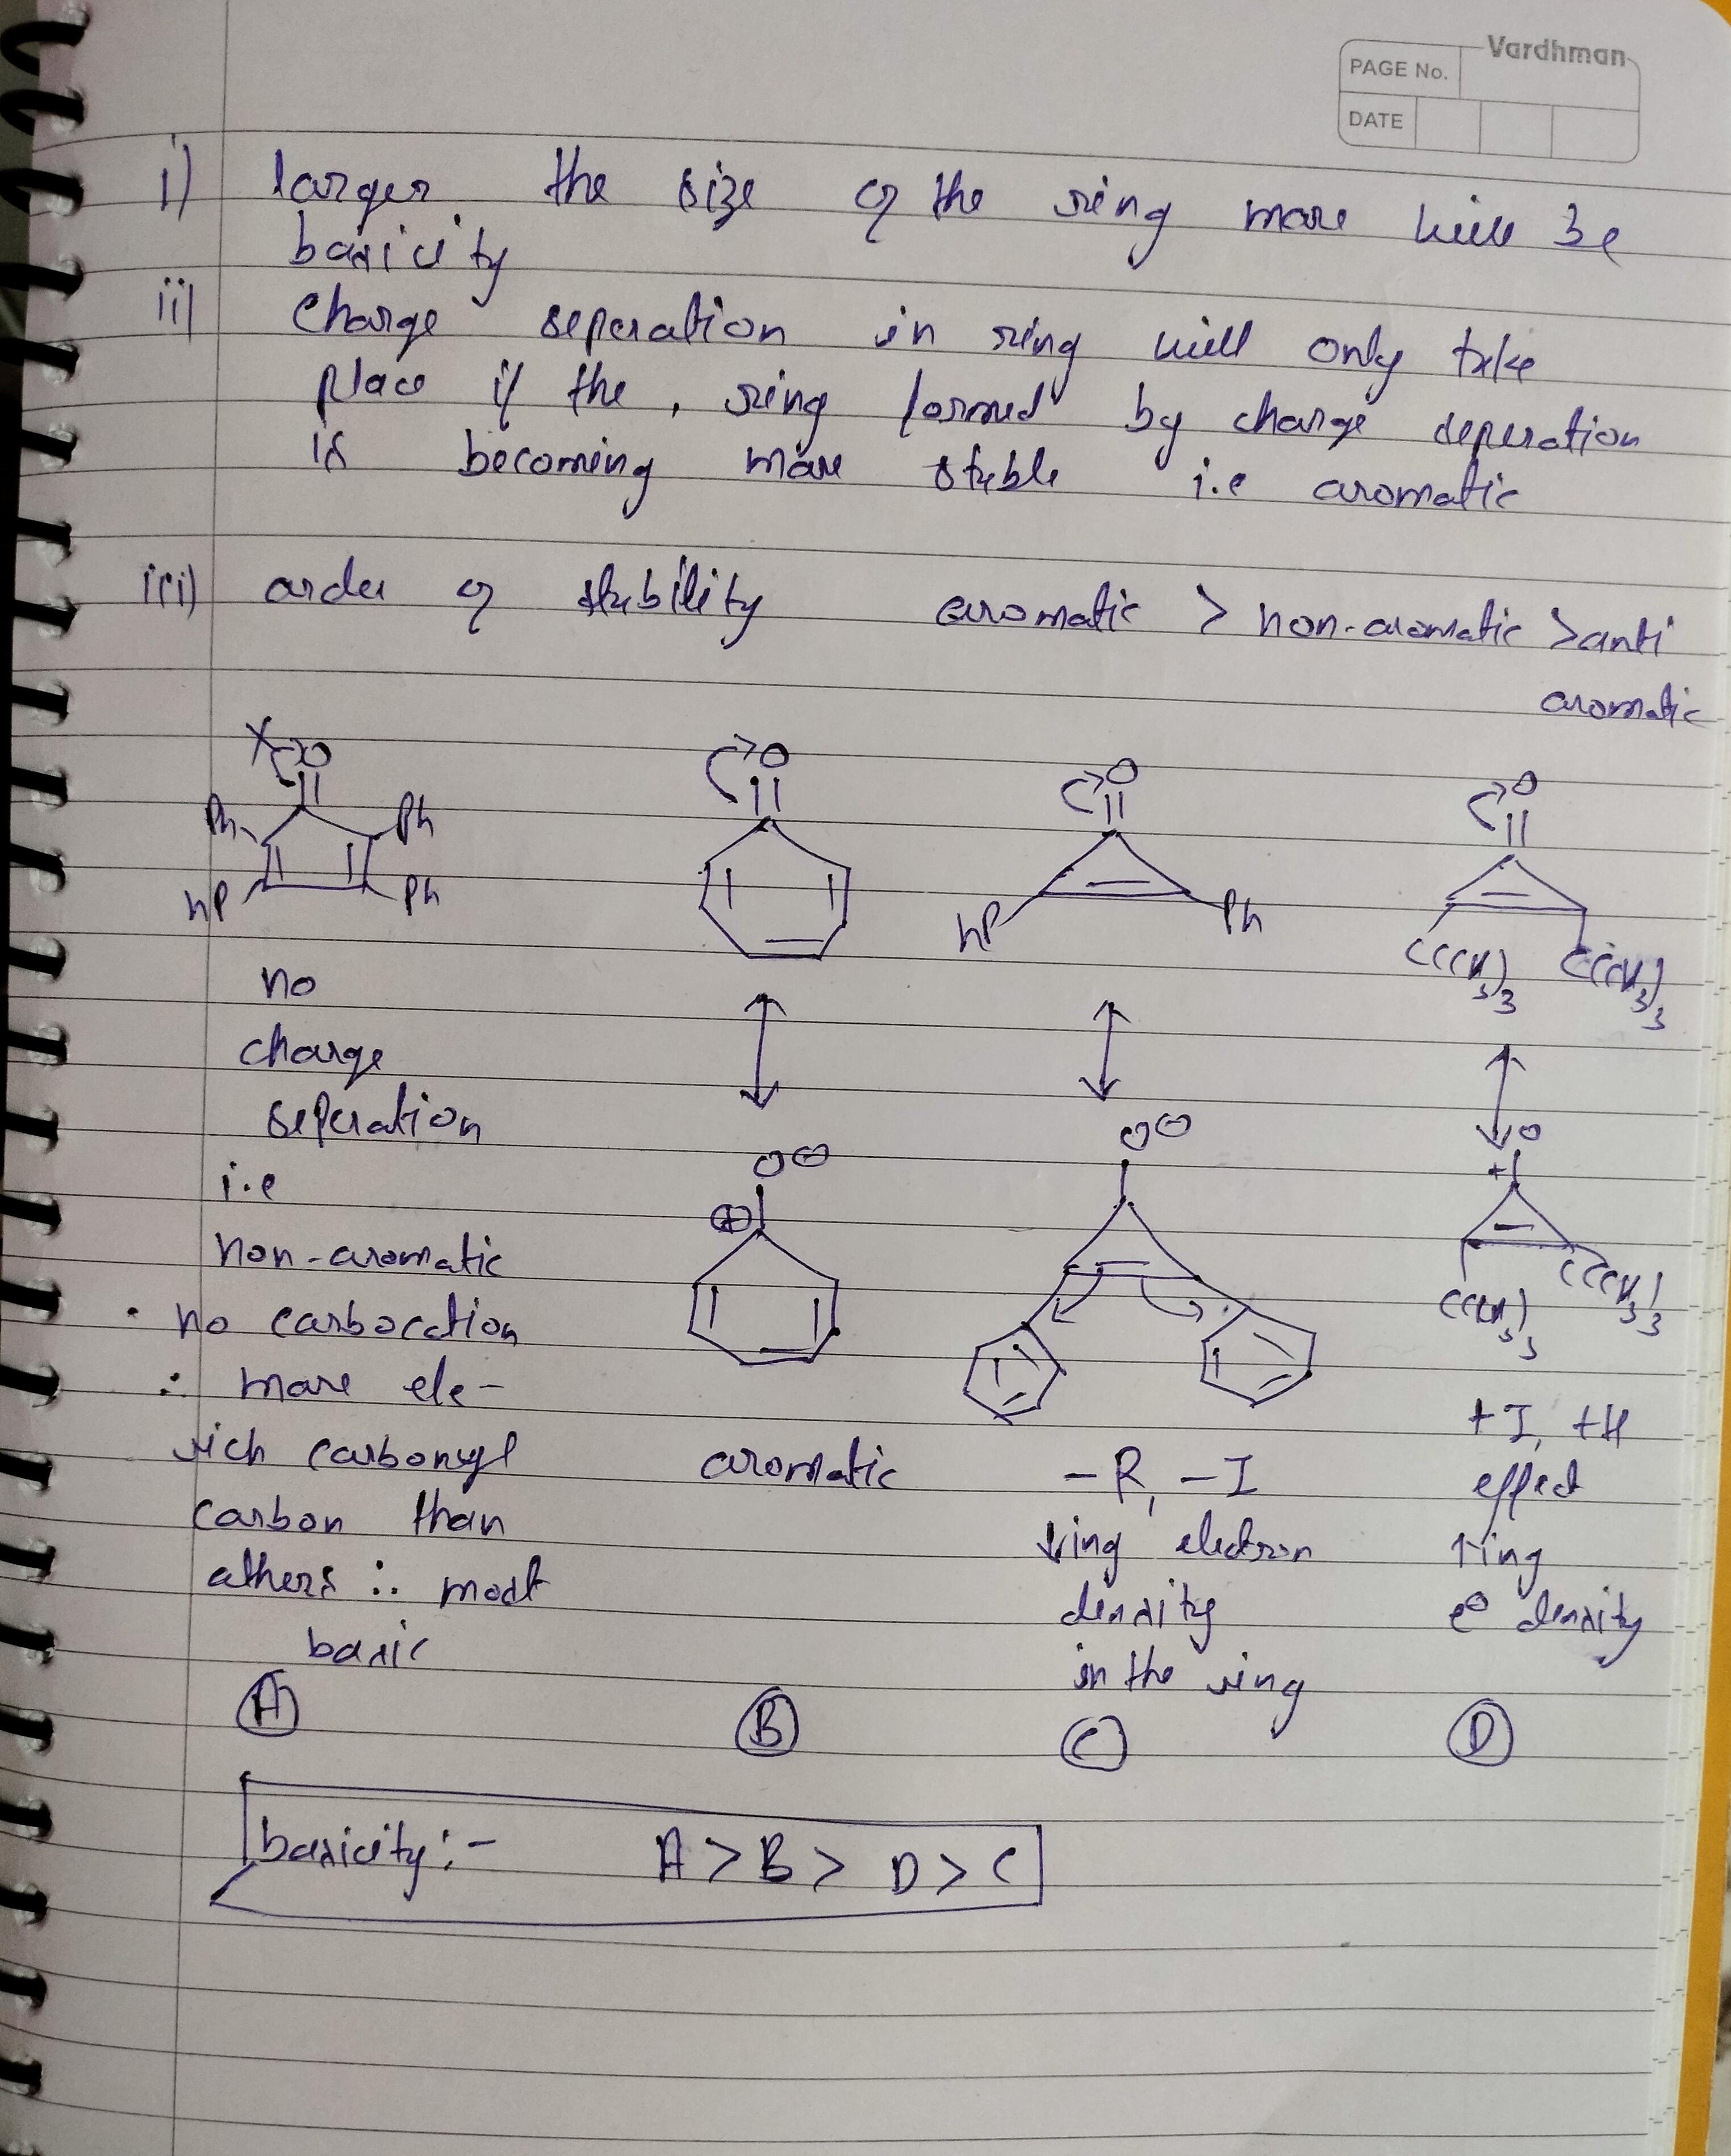 Vardhman
PAGE No.
DATE
i) larger the size of the ring more will be
basicity
ii) Charge seperation in ring will only take
place if the, ring formed by charge seperation
is becoming more stable i.e aromatic
iii) order of stability aromatic > non-aromatic > anti
aromatic
X O O O O
Ph Ph
hP Ph hP Ph
C(CH3)3 C(CH3)3
no
charge
seperation
i.e
non-aromatic
no carbocation
∴ more ele-
rich carbonyl
carbon than
others ∴ most
basic
A
O⊖
⊕
aromatic
B
O⊖
-R, -I
↓ing electron
density
in the ring
C
O
+
C(CH3)3 C(CH3)3
+I, +H
effect
↑ing
e⊖ density
D
basicity:- A > B > D > C